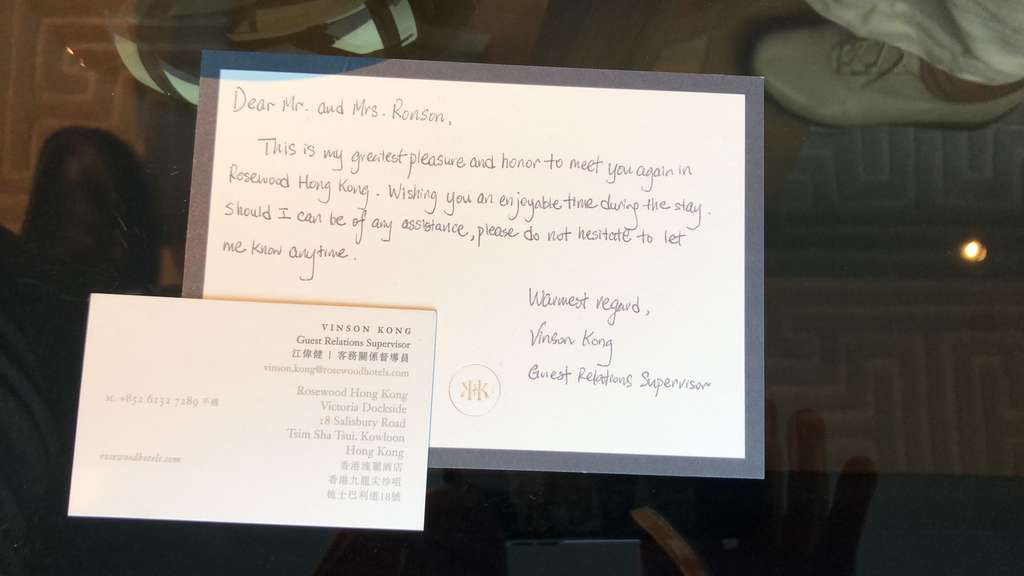 Dear Mr. and Mrs. Ronson,
This is my greatest pleasure and honor to meet you again in
Rosewood Hong Kong. Wishing you an enjoyable time during the stay.
Should I can be of any assistance, please do not hesitate to let
me know anytime.
Warmest regard,
Vinson Kong
Guest Relations Supervisor
VINSON KONG
Guest Relations Supervisor
江偉健 | 客務關係督導員
vinson.kong@rosewoodhotels.com
M. +852 6131 7189 手機
Rosewood Hong Kong
Victoria Dockside
18 Salisbury Road
Tsim Sha Tsui, Kowloon
Hong Kong
香港瑰麗酒店
香港九龍尖沙咀
梳士巴利道18號
rosewoodhotels.com